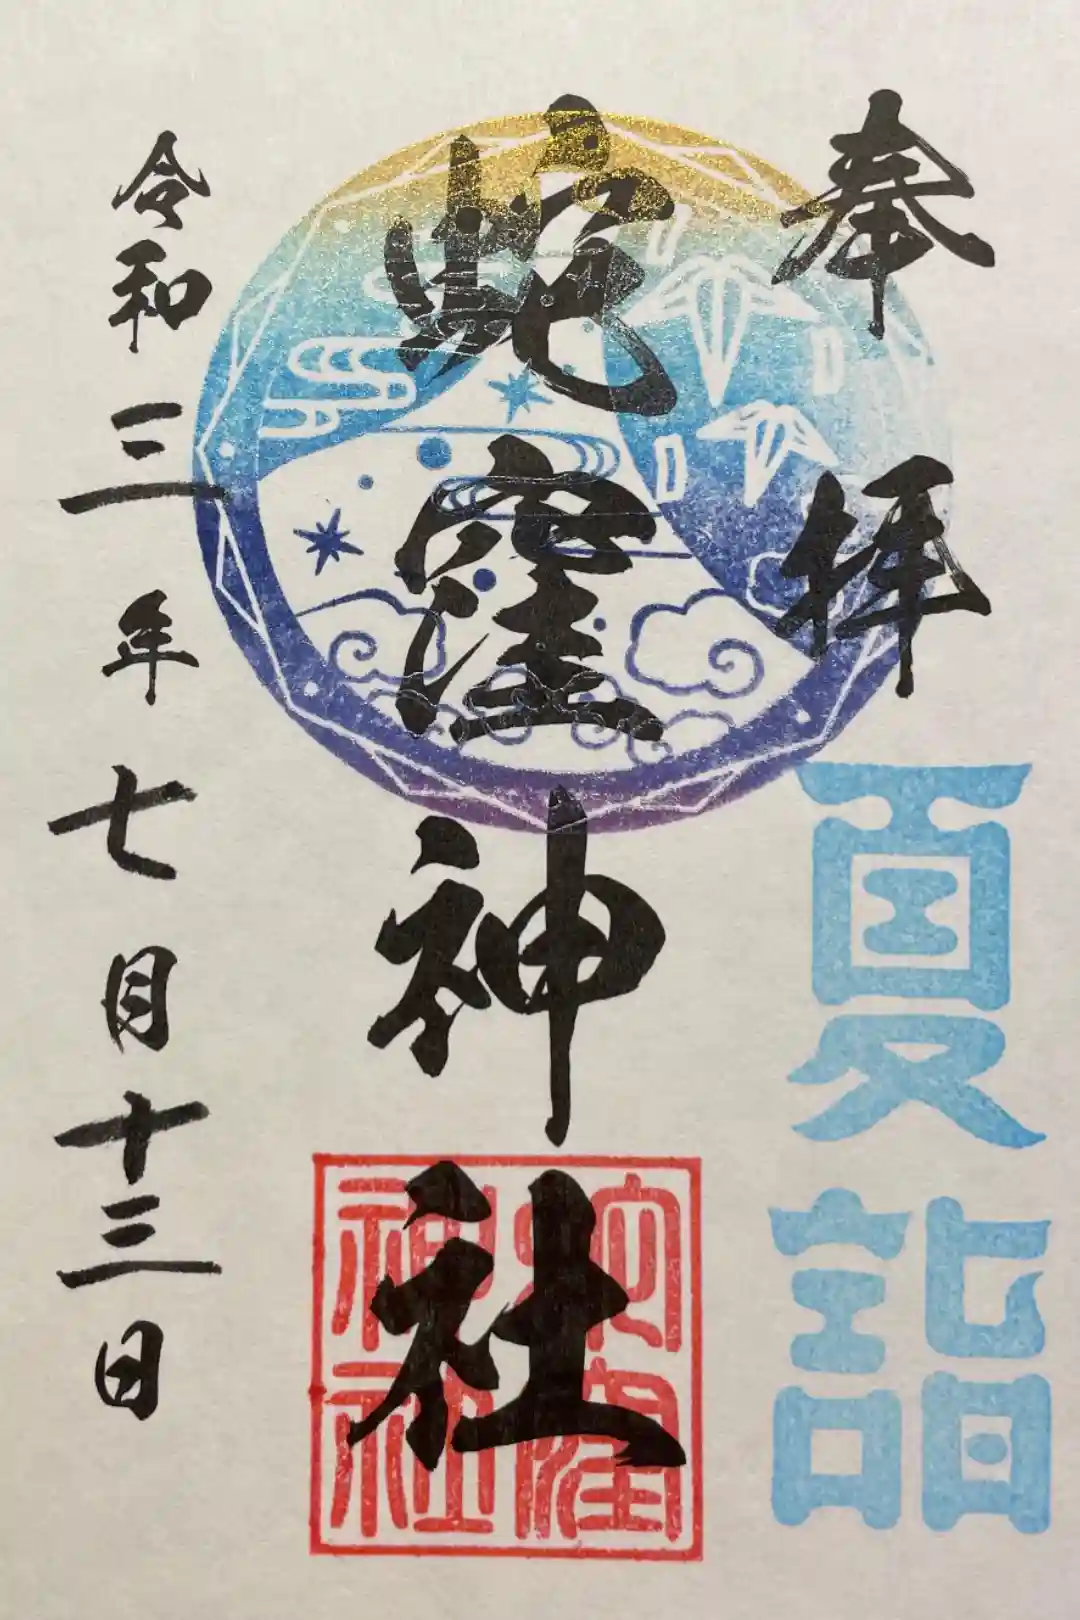 奉拝
夏詣
蛇窪神社
蛇窪神社
令和三年七月十三日